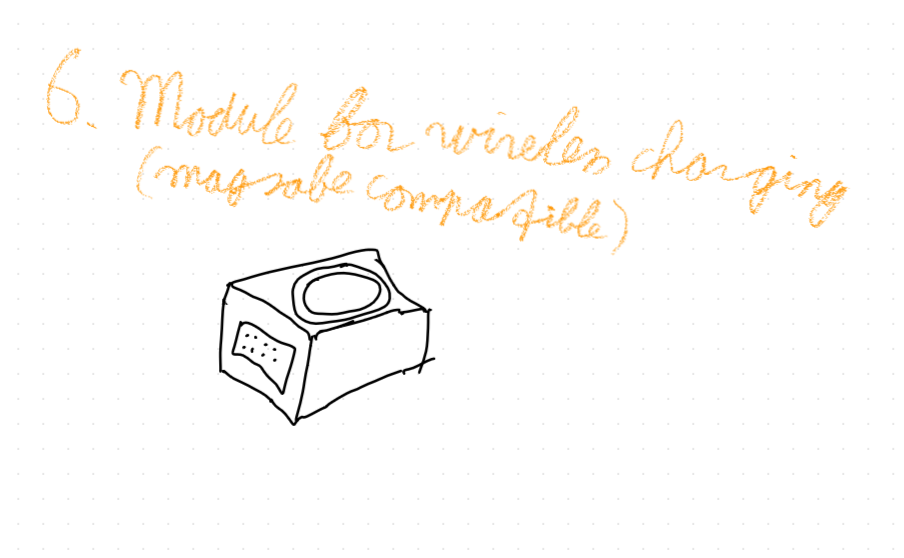 6. Module for wireless charging
(magsafe compatible)